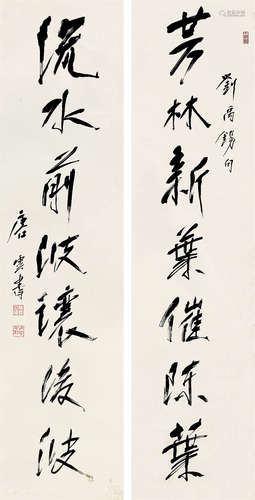 劉禹錫句
芳林新葉催陳葉
流水前波讓後波
唐雲書